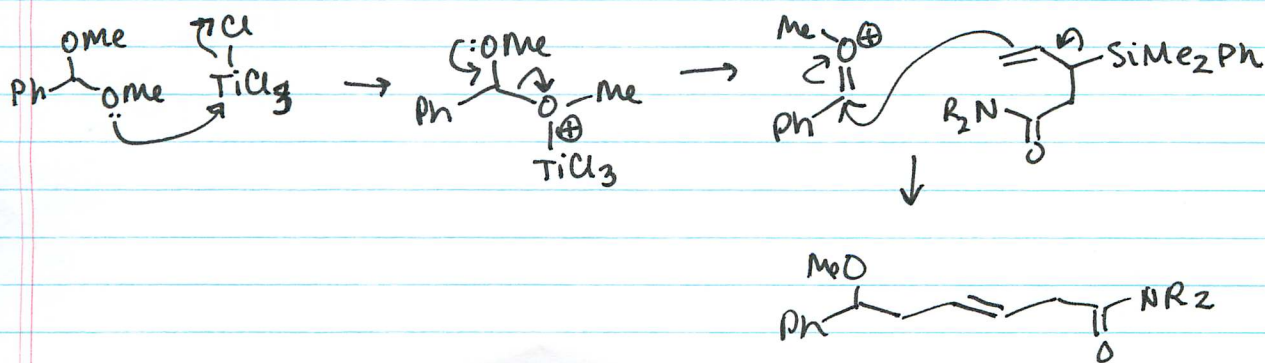 OMe
Cl
Ph
OMe
TiCl3
:OMe
Ph
O
Me
⊕
TiCl3
Me
O
⊕
Ph
SiMe2Ph
R2N
O
MeO
Ph
NR2
O